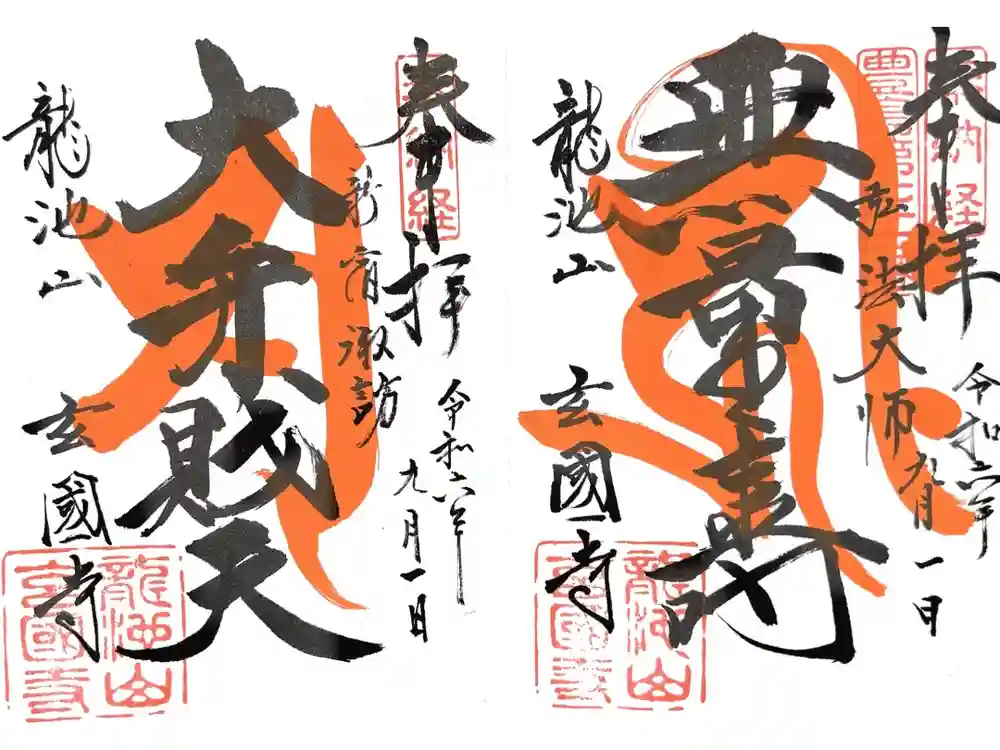 奉拝
令和六年
九月一日
納経
諏訪
大弁財天
龍池山
玄國寺
龍池山
玄國寺
奉拝
令和六年
九月一日
納経
弘法大师
無量寿
龍池山
玄國寺
龍池山
玄國寺